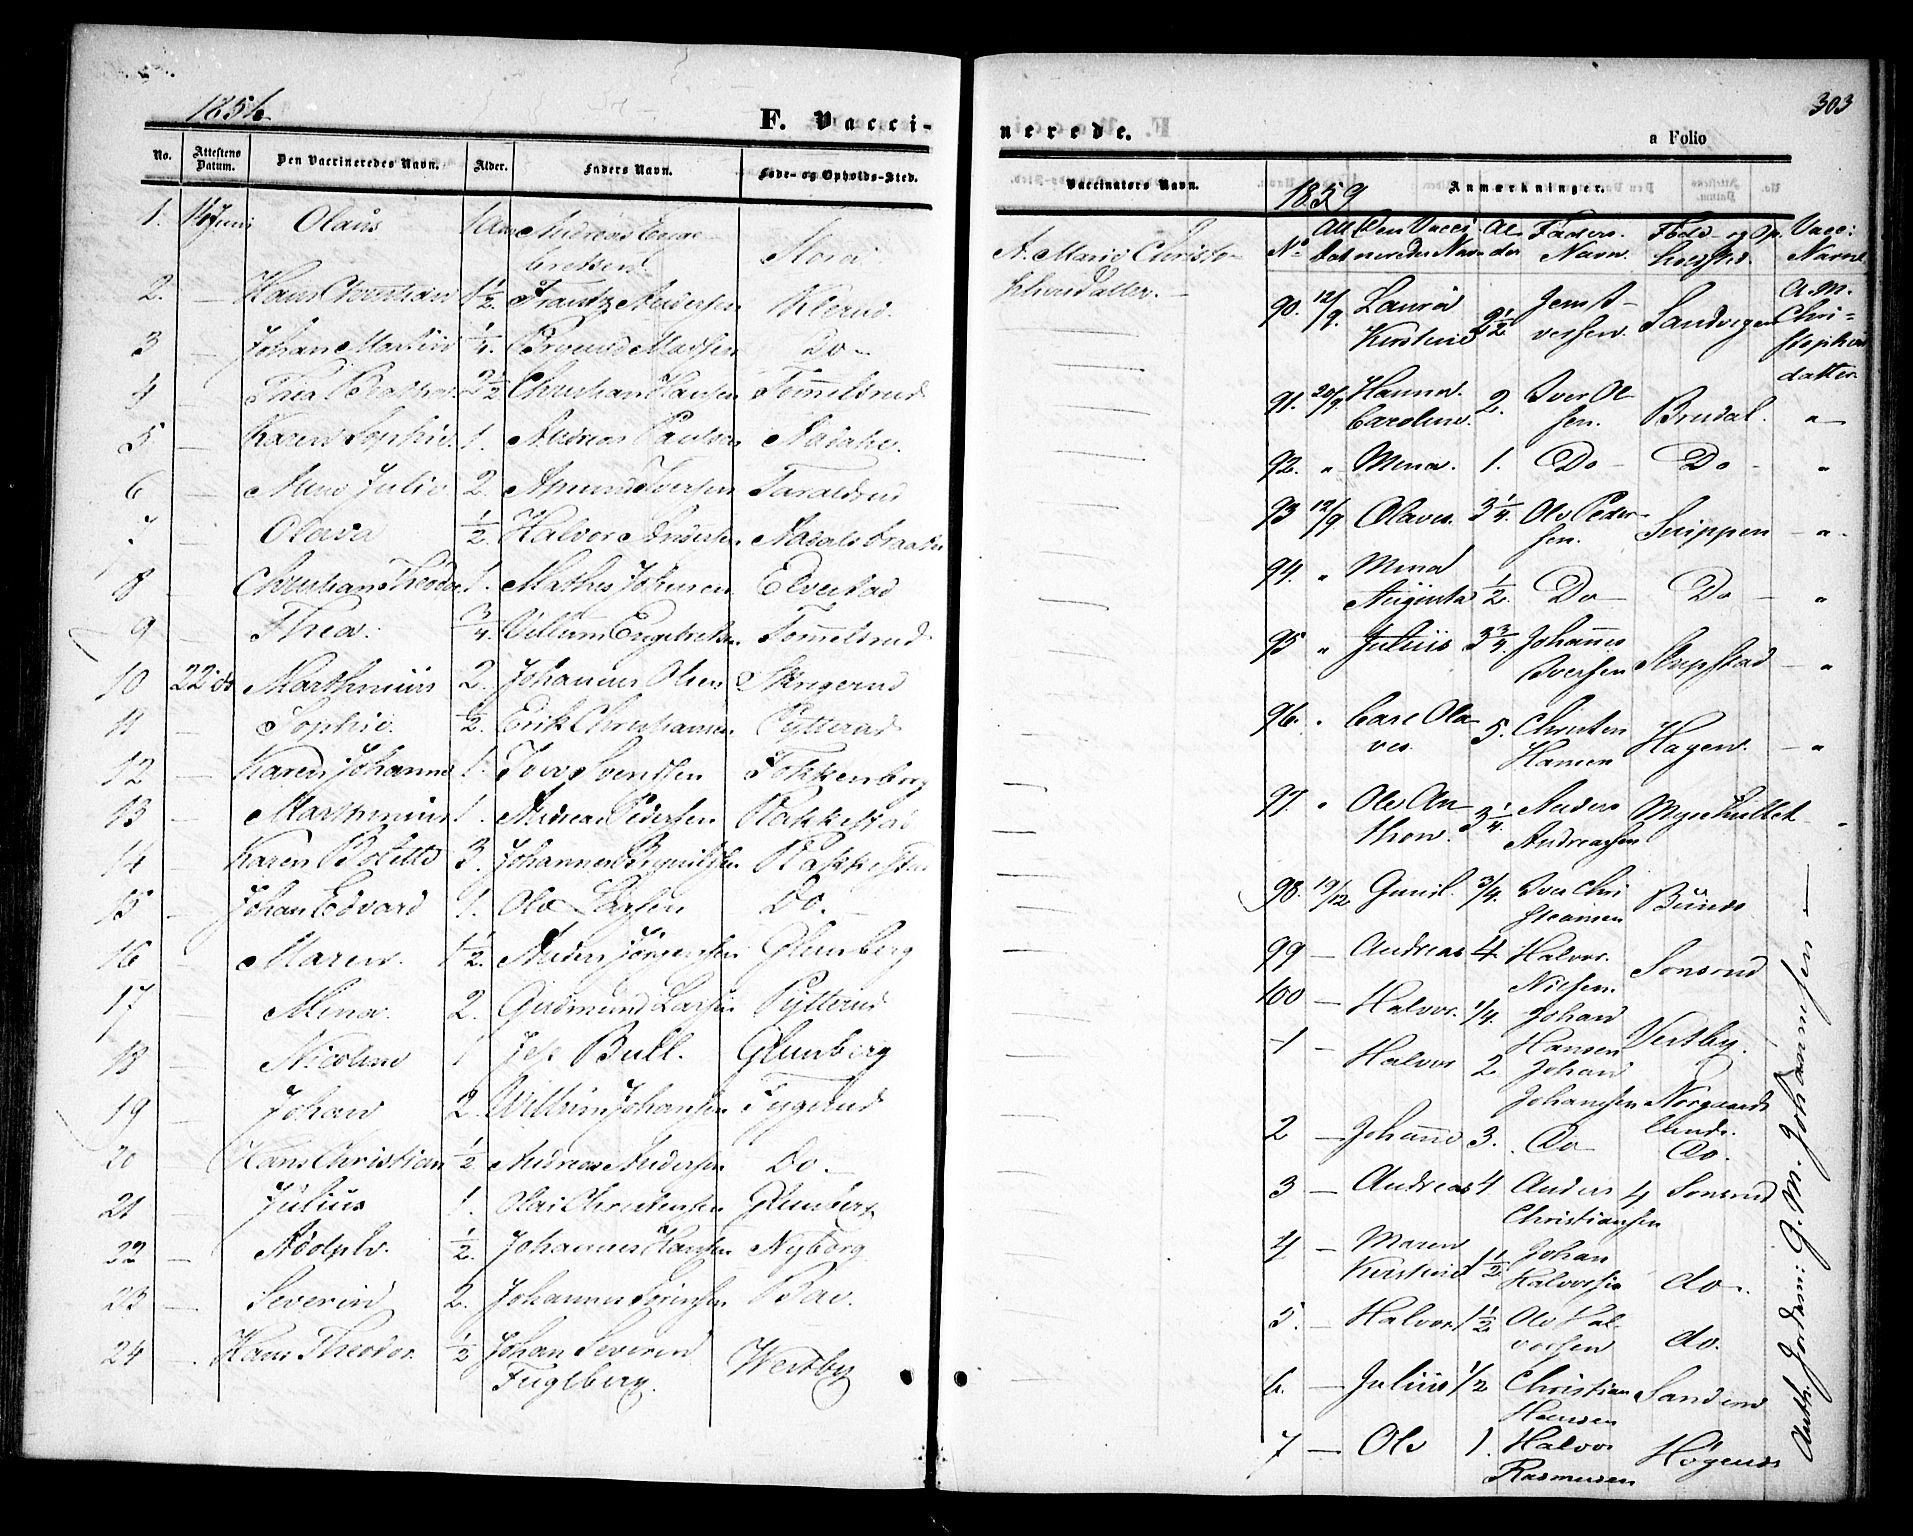 1856
F. Vacci-
No. Attestens Datum. Den Vaccineredes Navn. Alder. Faders Navn. Føde- og Opholds-Sted.
1. 14 Juni Olaus 1 Aar Andreas Enge-
bretsen
2. — Hans Christian 1 1/2 Frantz Andersen
3 — Johan Martin 1/4. Madsen Do —
4 — Thea 2 1/2 Christian Hansen Tømmelsrud
5 — Karen Sophie. 1. Andreas Paulsen
6 — Julie 2. Amund Iversen Taraldrud
7 — Olava 1/2 Halvor Andersen
8 — Christian Theodor 1. Mathes Johnsen Elvestad
9 — Thea. 3/4 Villum Engebretsen Tømmelsrud
10 22 do Marthinius 2. Johannes Olsen Skrigerud
11 — Sophie. 1/2 Erik Christiansen Pytterud
12 — Karen Johanne 1. Iver Svendsen Fokkenborg
13 — Marthinius 1. Andreas Pedersen Rakkestad
14 — Karen Bolette 3. Johannes Rakkestad
15 — Johan Edvard 1. Ole Larsen Do.
16 — Maren. 1 1/2. Anders Jörgensen Glenberg
17 — Mina. 2. Gudmund Larsen Pytterud
18 — Nicoline 1 Jess Bull. Glenberg
19 — Johan 2. Wilhelm Johansen Tygerud
20 Hans Christian 1/2 Andreas Andersen Do. —
21 — Julius 1. Olai Christensen Glenberg
22 — Adolph. 1/2. Johannes Hansen Nyborg
23 — Severin 2. Johannes Sörensen
24 — Hans Theodor. 1/2 Johan Severin Westby
Fuglberg.
303
nerede.
a Folio
Vaccinators Navn. Anmærkninger.
1859
A. Marie Christo-
phersdatter. —
No Att. Dat Den Vacci- neredes Navn Al- der Faders Navn Føde- og Op- holdsted. Vacc: Navn
90. 12/9. Laura Kirstine 2 1/2 Jens I- versen Sandvigen A. M. Chri- stophers datter.
91. 20/9. Hanna Caroline. 2. Iver Ol- sen. Brudal. „
92. „ Mina. 1. Do — Do — „
93 12/9 Olaves. 3 1/4. Ole Peder- sen. Snippen — „
94. „ Mina Augusta 1/2. Do — Do — „
95 „ Julius 3 3/4. Johannes Iversen Slupstad — „
96. „ Carl Ola- ves. 5. Christen Hansen Hagen. — „
97. „ Ole An- thon. 3 1/4 Anders Andreasen „
98. 19/12 Gunil. 3/4. Iver Chri- stiansen Bunds
99 — Andreas 4. Halvor. Nielsen. Sonsrud
100 — Halvor. 1/4. Johan Hansen Vestby.
1 — Halvor 2 Johan Johansen Norgaards lund.
2 — Johanne 3. Do Do.
3 — Andreas 4 Anders Christiansen 4 Sonsrud
4 — Maren Kirstine 1 1/2. Johan Halvorsen do.
5. — Halvor. 1 1/2 Ole Hal- vorsen do.
6. — Julius 1/2 Christian Hansen Sanden
7 — Ole 1. Halvor Rasmussen
Auth. Jordem: G. M. Johannesen —